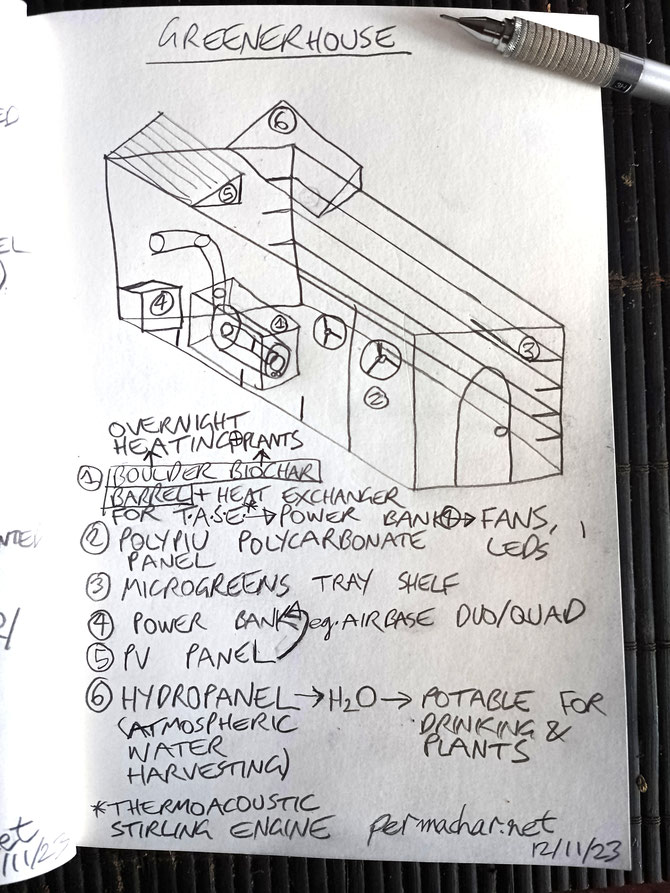 GREENERHOUSE
6
5
4
1
3
2
OVERNIGHT
HEATING + PLANTS
① BOULDER BIOCHAR
BARREL + HEAT EXCHANGER
FOR T.A.S.E.* → POWER BANK ④ → FANS,
LEDS
② POLYPIU POLYCARBONATE
PANEL
③ MICROGREENS TRAY SHELF
④ POWER BANK eg. AIRBASE DUO/QUAD
⑤ PV PANEL
⑥ HYDROPANEL → H2O → POTABLE FOR
(ATMOSPHERIC DRINKING &
WATER PLANTS
HARVESTING)
*THERMOACOUSTIC
STIRLING ENGINE permachar.net
12/11/23